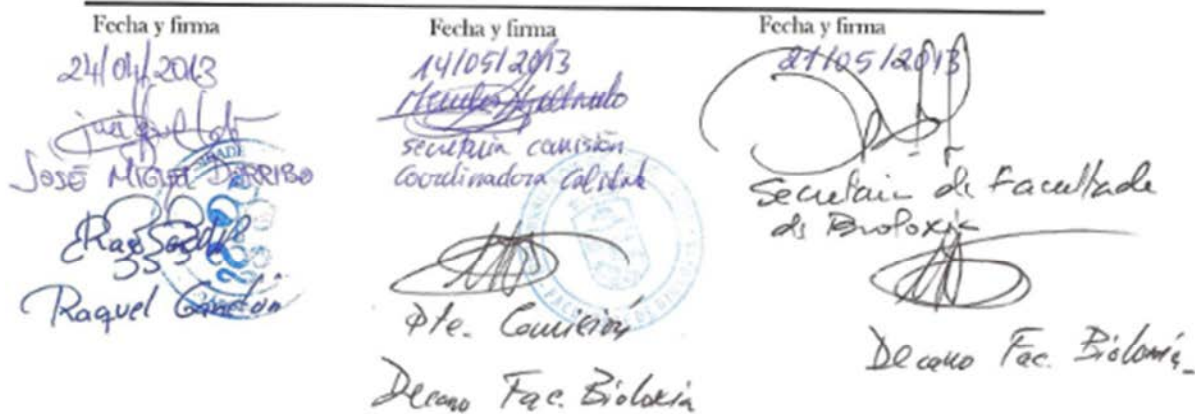 Fecha y firma
24/04/2013
JOSÉ MIGUEL DORRIBO
Raquel
Fecha y firma
14/05/2013
secretaria comisión
Coordinadora Calidade
Pte. Comisión
Decano Fac. Bioloxía
Fecha y firma
21/05/2013
Secretaria de Facultade
de Bioloxía
Decano Fac. Bioloxía